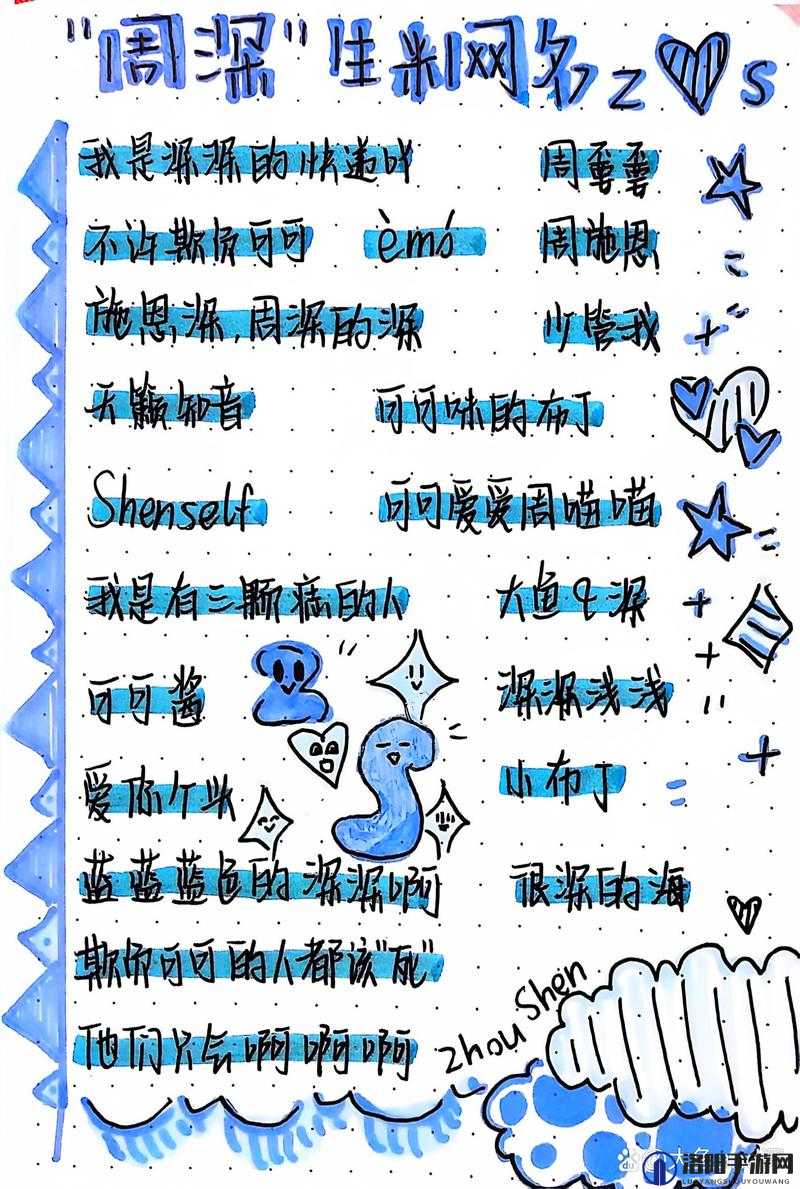 "周深"生米网名 Z S
我是深深的快递吖 周雲雲
不许欺负可可 èmó 周施恩
施恩深,周深的深 少管我
天籁知音 可可味的布丁
Shenself 可可爱爱周喵喵
我是有三颗痣的人 大鱼 深
可可酱 深深浅浅
爱你个头 小布丁
蓝蓝蓝色的深深啊 很深的海
欺负可可的人都该"死"
他们只会啊啊啊
Zhou Shen
洛阳手游网
LUOYANGSHOUYOUWANG